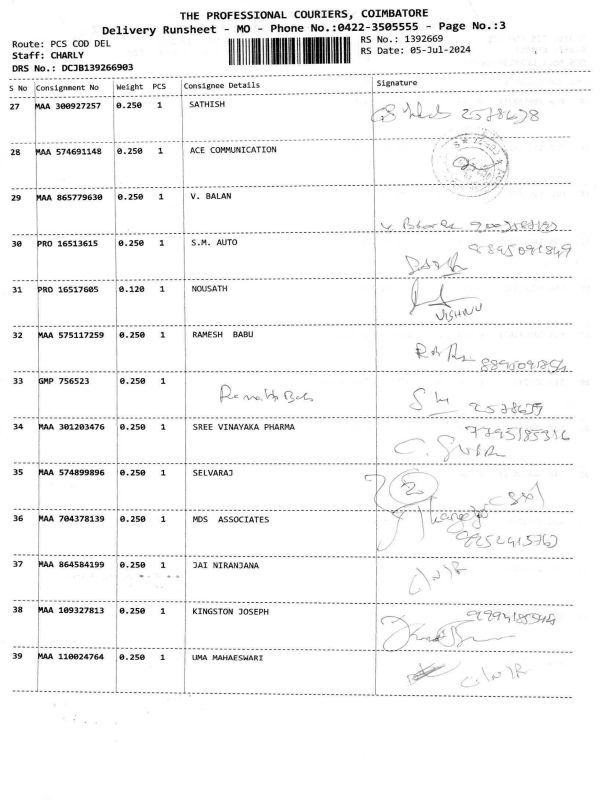 THE PROFESSIONAL COURIERS, COIMBATORE
Delivery Runsheet - MO - Phone No.:0422-3505555 - Page No.:3
Route: PCS COD DEL RS No.: 1392669
Staff: CHARLY RS Date: 05-Jul-2024
DRS No.: DCJB139266903
S No Consignment No Weight PCS Consignee Details Signature
27 MAA 300927257 0.250 1 SATHISH 2578678
28 MAA 574691148 0.250 1 ACE COMMUNICATION
29 MAA 865779630 0.250 1 V. BALAN
30 PRO 16513615 0.250 1 S.M. AUTO
31 PRO 16517605 0.120 1 NOUSATH VISHNU
32 MAA 575117259 0.250 1 RAMESH BABU
33 GMP 756523 0.250 1
34 MAA 301203476 0.250 1 SREE VINAYAKA PHARMA
35 MAA 574899896 0.250 1 SELVARAJ
36 MAA 704378139 0.250 1 MDS ASSOCIATES
37 MAA 864584199 0.250 1 JAI NIRANJANA
38 MAA 109327813 0.250 1 KINGSTON JOSEPH
39 MAA 110024764 0.250 1 UMA MAHAESWARI